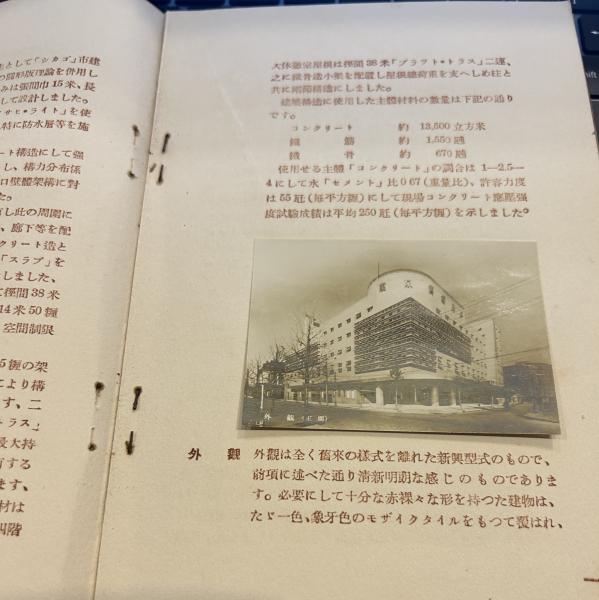 大休憩室屋根は徑間38米「プラット・トラス」二連、
之に鐵骨造小梁を配置し屋根總荷重を支へしめ柱と
共に剛節構造にしました。
建築構造に使用した主體材料の數量は下記の通り
です。
コンクリート 約 13,500 立方米
鐵 筋 約 1,550 瓲
鐵 骨 約 670 瓲
使用せる主體「コンクリート」の調合は 1—2.5—
4にして水「セメント」比0.67(重量比)、許容力度
は55瓩(每平方糎)にして現場コンクリート應壓强
度試驗成績は平均250瓩(每平方糎)を示しました。
外 觀 (正面)
外 觀 外觀は全く舊來の樣式を離れた新興型式のもので、
前項に述べた通り淸新明朗な感じのものでありま
す。必要にして十分な赤裸々な形を持つた建物は、
たゞ一色、象牙色のモザイクタイルをもつて覆はれ、
として「シカゴ」市建
の圓形版理論を併用し
みは張間巾15米、長
して設計しました。
サヒ・ライト」を使
特に防水層等を施
ート構造にして强
し、構力分布係
ロ壁體架構に對
た。
し此の周圍に
、廊下等を配
クリート造と
「スラブ」を
しました、
て徑間38米
14米50糎
空間制限
5糎の架
により構
す、二
トラス」
最大持
する
ます、
材は
四階